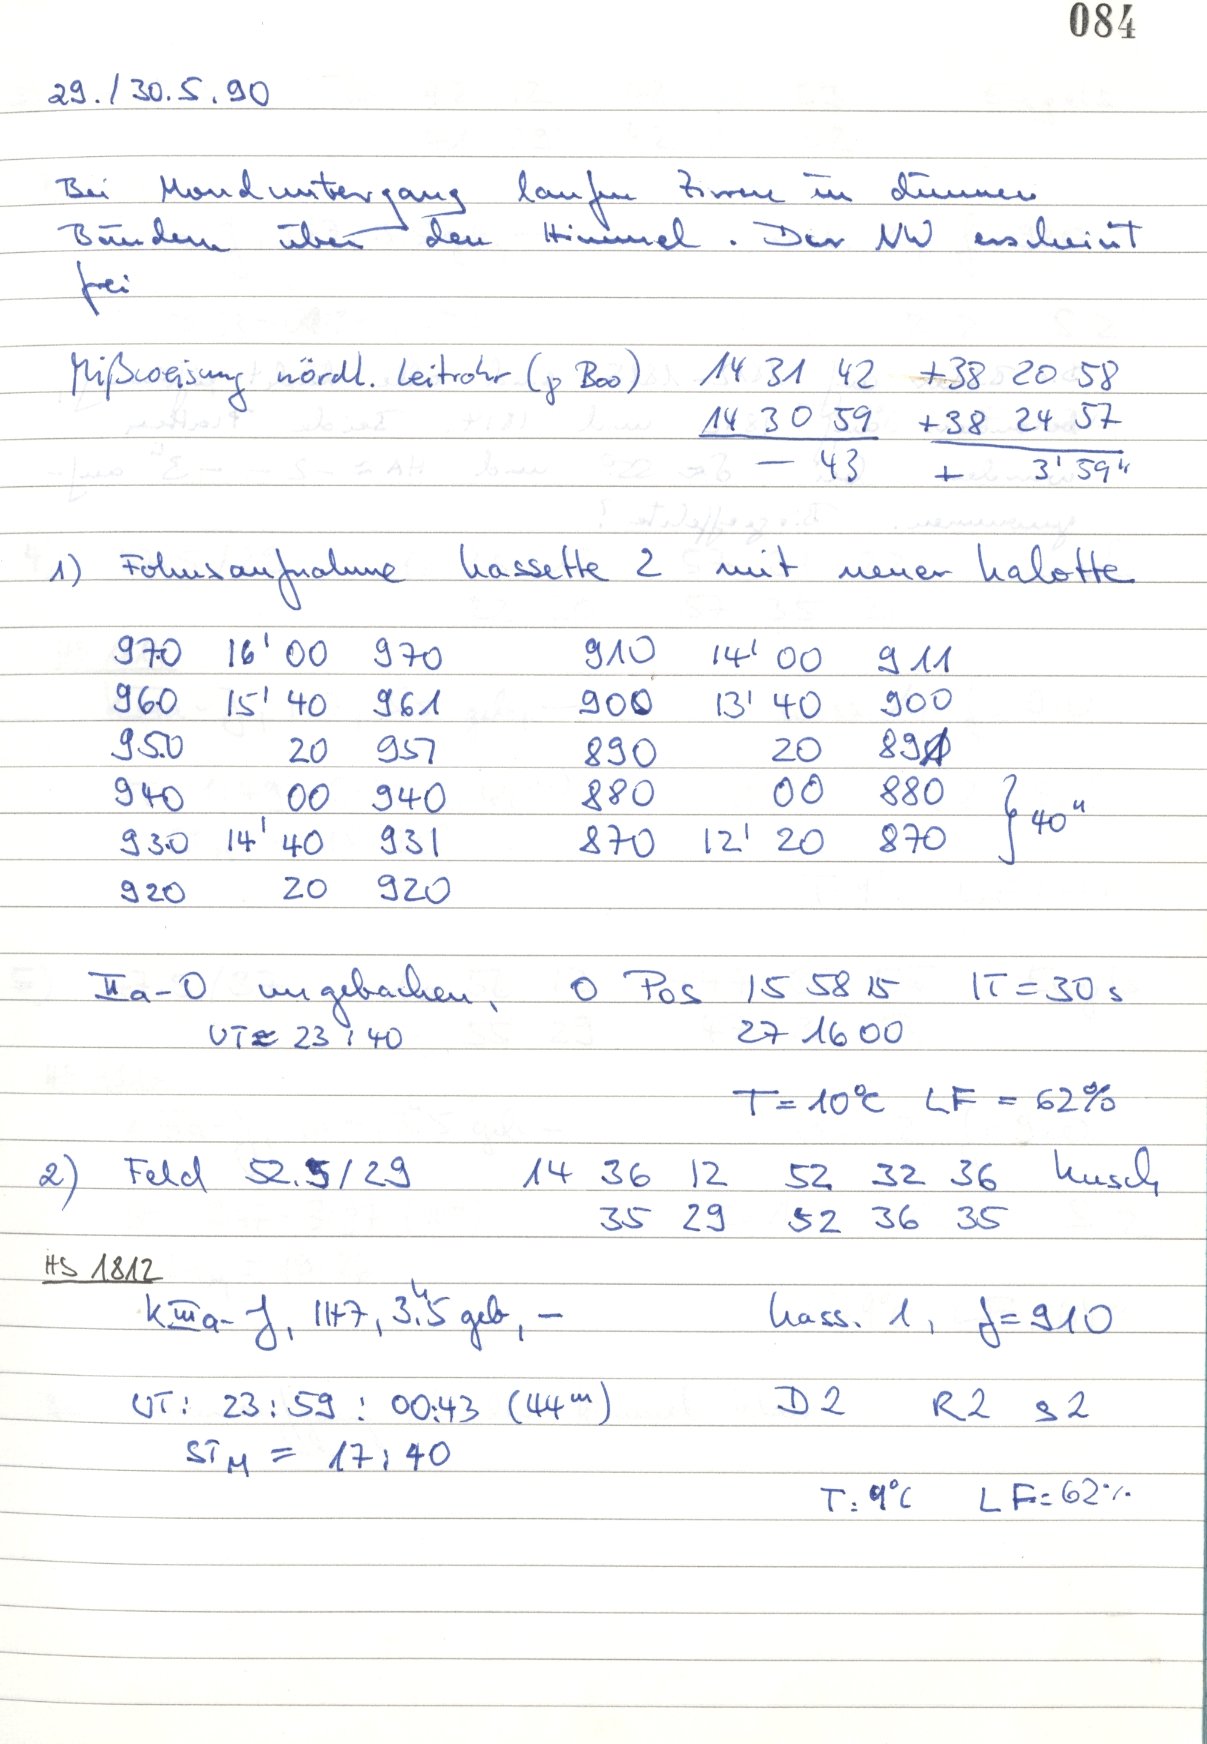 084
29./30.5.90
Bei Monduntergang laufen Zirren in dünnen
Bändern über den Himmel. Der NW erscheint
frei
Mißweisung nördl. Leitrohr (γ Boo) 14 31 42 +38 20 58
14 30 59 +38 24 57
- 43 + 3' 59"
1) Fokusaufnahme Kassette 2 mit neuer Kalotte
970 16' 00 970 910 14' 00 911
960 15' 40 961 900 13' 40 900
950 20 951 890 20 891
940 00 940 880 00 880
930 14' 40 931 870 12' 20 870 } 40"
920 20 920
IIa-O ungebacken, 0 Pos 15 58 15 IT = 30 s
UT ≈ 23:40 27 16 00
T = 10°C LF = 62%
2) Feld 52.5/29 14 36 12 52 32 36 Kusch
35 29 52 36 35
HS 1812
K IIIa-J, 1H7, 3.5 geb, - Kass. 1, f = 910
UT: 23:59 : 00:43 (44m) D2 R2 S2
STM = 17:40
T: 9°C LF = 62%